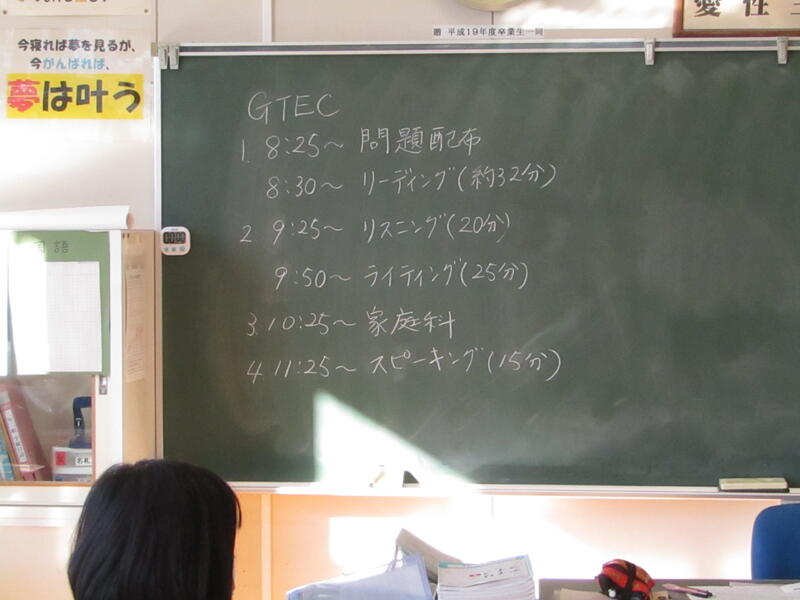 今寝れば夢を見るが、
今がんばれば、
夢は叶う
贈 平成19年度卒業生一同
愛 性
GTEC
1. 8:25～ 問題配布
8:30～ リーディング(約32分)
2 9:25～ リスニング(20分)
9:50～ ライティング(25分)
3. 10:25～ 家庭科
4. 11:25～ スピーキング(15分)
国語
名札